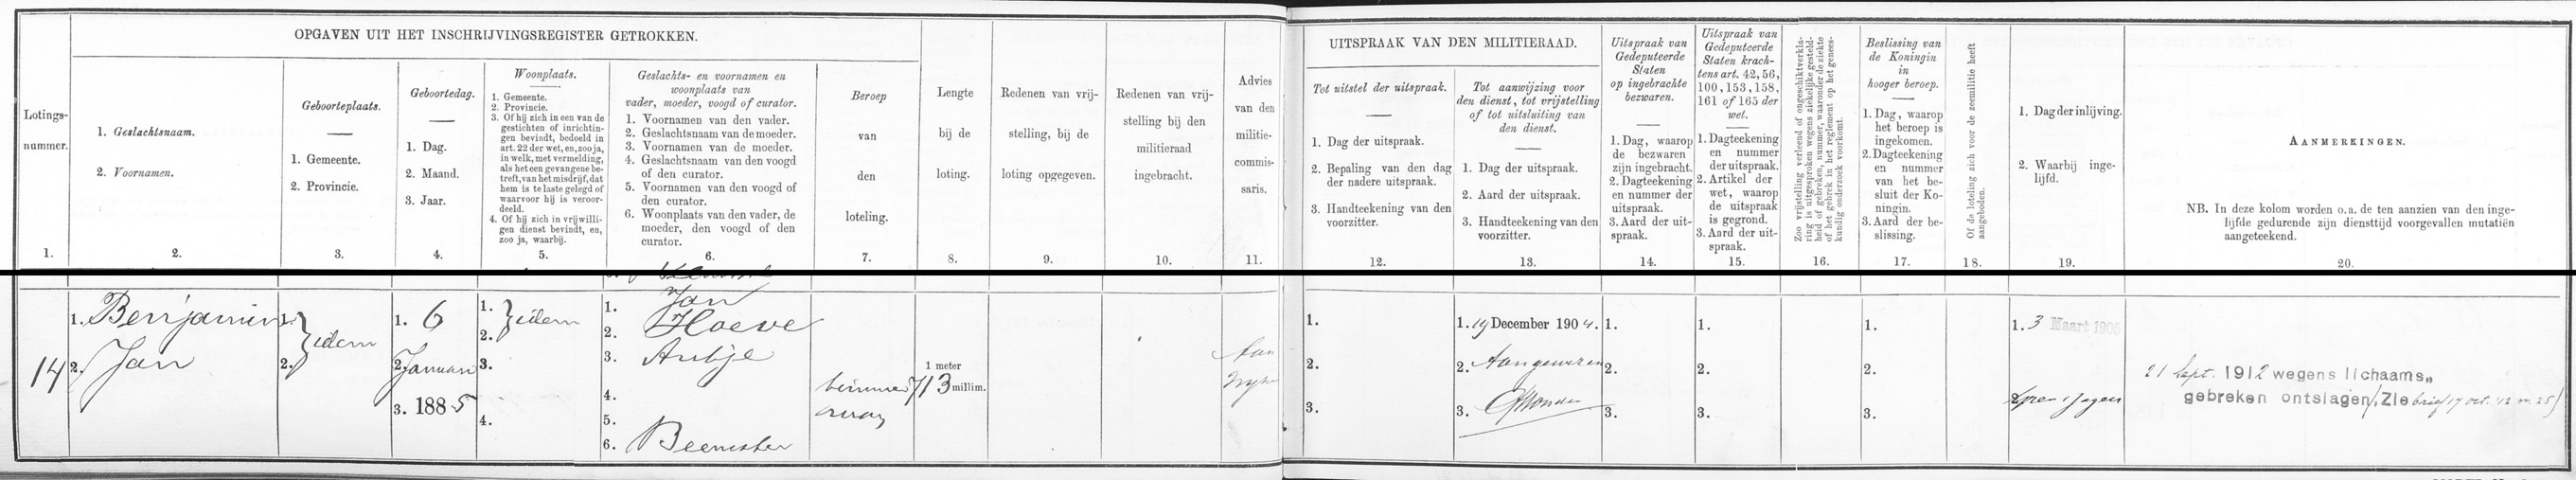 OPGAVEN UIT HET INSCHRIJVINGSREGISTER GETROKKEN.
Lotings-
nummer.
1.
1. Geslachtsnaam.
2. Voornamen.
2.
Geboorteplaats.
1. Gemeente.
2. Provincie.
3.
Geboortedag.
1. Dag.
2. Maand.
3. Jaar.
4.
Woonplaats.
1. Gemeente.
2. Provincie.
3. Of hij zich in een van de
gestichten of inrichtin-
gen bevindt, bedoeld in
art. 22 der wet, en, zoo ja,
in welk, met vermelding,
als het een gevangene be-
treft, van het misdrijf, dat
hem is te laste gelegd of
waarvoor hij is veroor-
deeld.
4. Of hij zich in vrijwilli-
gen dienst bevindt, en,
zoo ja, waarbij.
5.
Geslachts- en voornamen en
woonplaats van
vader, moeder, voogd of curator.
1. Voornamen van den vader.
2. Geslachtsnaam van de moeder.
3. Voornamen van de moeder.
4. Geslachtsnaam van den voogd
of den curator.
5. Voornamen van den voogd of
den curator.
6. Woonplaats van den vader, de
moeder, den voogd of den
curator.
6.
Beroep
van
den
loteling.
7.
Lengte
bij de
loting.
8.
Redenen van vrij-
stelling, bij de
loting opgegeven.
9.
Redenen van vrij-
stelling bij den
militieraad
ingebracht.
10.
Advies
van den
militie-
commis-
saris.
11.
UITSPRAAK VAN DEN MILITIERAAD.
Tot uitstel der uitspraak.
1. Dag der uitspraak.
2. Bepaling van den dag
der nadere uitspraak.
3. Handteekening van den
voorzitter.
12.
Tot aanwijzing voor
den dienst, tot vrijstelling
of tot uitsluiting van
den dienst.
1. Dag der uitspraak.
2. Aard der uitspraak.
3. Handteekening van den
voorzitter.
13.
Uitspraak van
Gedeputeerde
Staten
op ingebrachte
bezwaren.
1. Dag, waarop
de bezwaren
zijn ingebracht.
2. Dagteekening
en nummer der
uitspraak.
3. Aard der uit-
spraak.
14.
Uitspraak van
Gedeputeerde
Staten krach-
tens art. 42, 56,
100, 153, 158,
161 of 165 der
wet.
1. Dagteekening
en nummer
der uitspraak.
2. Artikel der
wet, waarop
de uitspraak
is gegrond.
3. Aard der uit-
spraak.
15.
Zoo vrijstelling verleend of ongeschiktverkla-
ring is uitgesproken wegens ziekelijke gesteld-
heid of gebreken, nummer, waaronder de ziekte
of het gebrek in het reglement op het genees-
kundig onderzoek voorkomt.
16.
Beslissing van
de Koningin
in
hooger beroep.
1. Dag, waarop
het beroep is
ingekomen.
2. Dagteekening
en nummer
van het be-
sluit der Ko-
ningin.
3. Aard der be-
slissing.
17.
Of de loteling zich voor de zeemilitie heeft
aangeboden.
18.
1. Dag der inlijving.
2. Waarbij inge-
lijfd.
19.
AANMERKINGEN.
NB. In deze kolom worden o.a. de ten aanzien van den inge-
lijfde gedurende zijn diensttijd voorgevallen mutatiën
aangeteekend.
20.
14
1. Benjamin
2. Jan
1.
2. idem
1. 6
2. Januari
3. 1885
1.
2. idem
3.
4.
1. Jan
2. Hoeve
3. Antje
4.
5.
6. Beemster
timmer
1 meter
713 millim.
1.
2.
3.
1. 19 December 1904.
2. Aangewezen
3.
1.
2.
3.
1.
2.
3.
1.
2.
3.
1. 3 Maart 1905
2. Gren. Jagers
21 Sept. 1912 wegens lichaams„
gebreken ontslagen (Zie brief 17 oct. '12 n. 25)